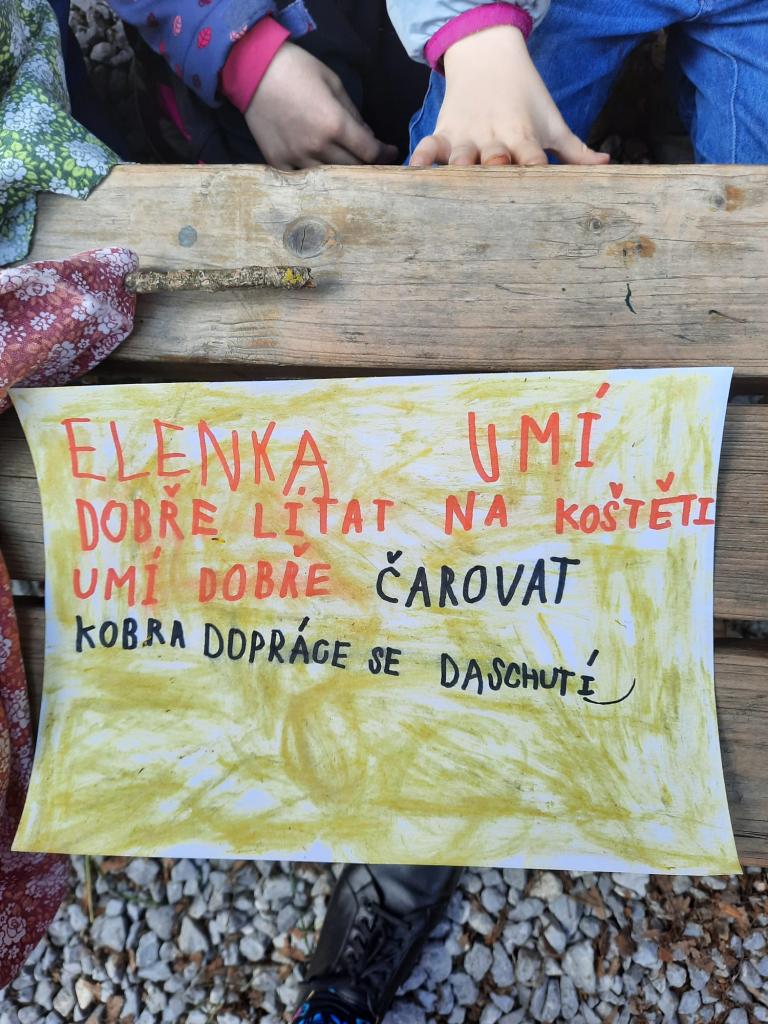 ELENKA UMÍ
DOBŘE LÍTAT NA KOŠTĚTI
UMÍ DOBŘE ČAROVAT
KOBRA DOPRÁCE SE DASCHUTÍ